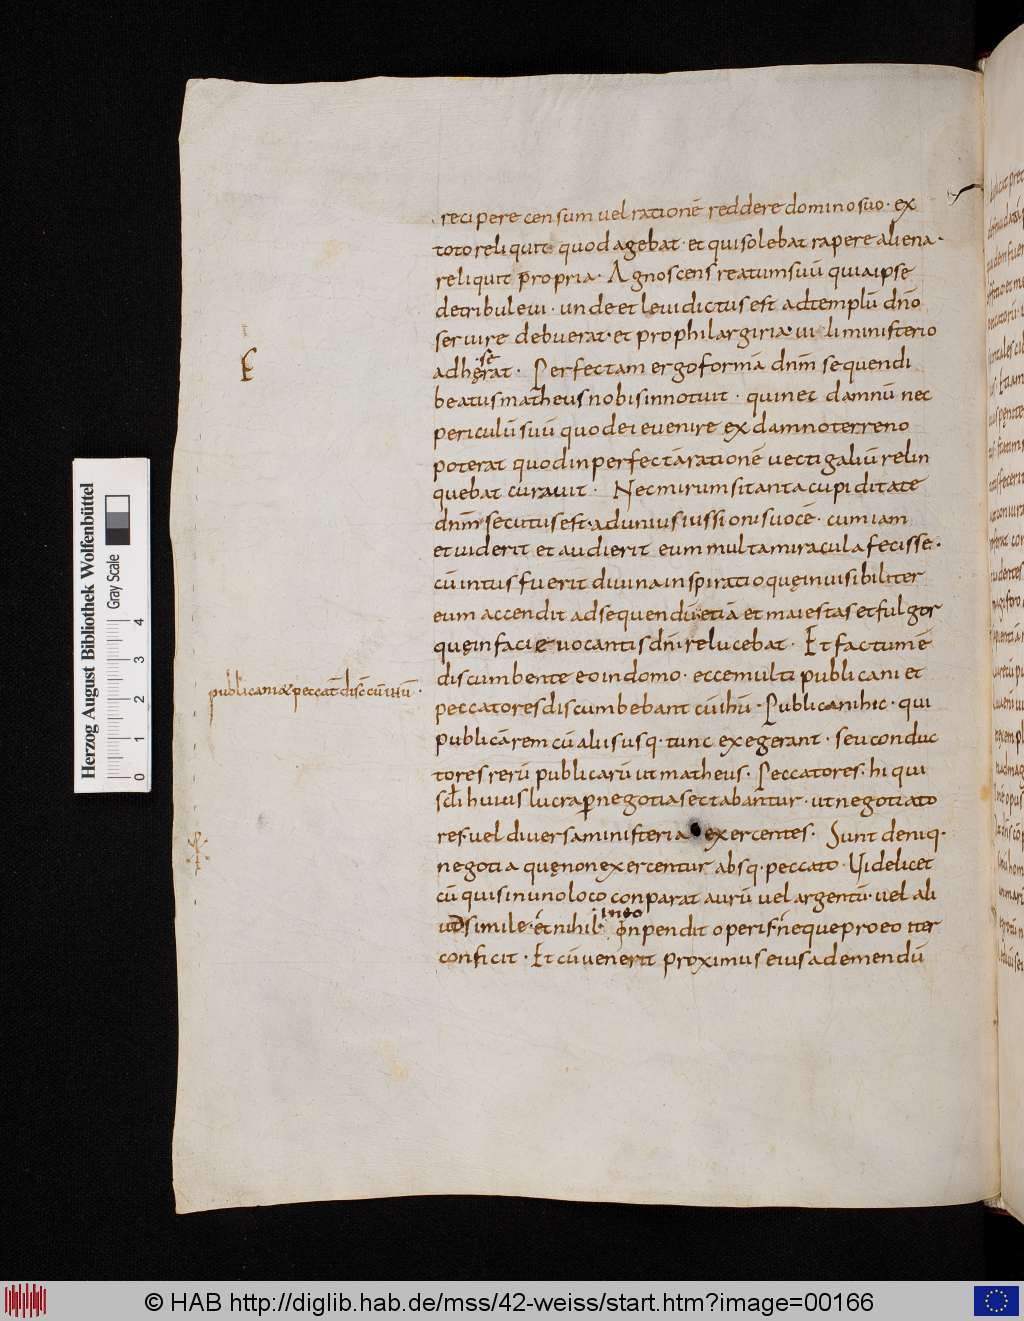 recipere censum uel rationē reddere domino suo · ex
toto reliquit quod agebat · et qui solebat rapere aliena ·
reliquit propria · Agnoscens reatum suū quia ipse
de tribu leui · unde et leui dictus est ad templū dn̄o
seruire debuerat · et pro philargiria ui li ministerio
se
adhęrat · Perfectam ergo formā dn̄m sequendi
beatus matheus nobis innotuit · qui nec damnū nec
periculū suū quod ei euenire ex damno terreno
poterat quod inperfectā rationē uectigaliū relin
quebat curauit · Nec mirum si tanta cupiditate
dn̄m secutus est · ad unius iussionis uocē · cum iam
et uiderit et audierit eum multa miracula fecisse ·
cū intus fuerit diuina inspiratio quę inuisibiliter
eum accendit ad sequendū etiā et maiestas et fulgor
quę in facie uocantis dn̄i relucebat · Et factum ē
discumbente eo in domo · ecce multi publicani et
publicani & peccat̄ disc̄ cū ih̄ū ·
peccatores discumbebant cū ih̄ū · Publicani hic · qui
publicā rem cū aliis usq · tunc exegerant · seu conduc
tores rerū publicarū ut matheus · Peccatores · hi qui
sc̄li huius lucra p negotia sectabantur · ut negotiato
res uel diuersa ministeria exercentes · Sunt deniq ·
negotia quę non exercentur absq · peccato · Uidelicet
cū quis in uno loco conparat aurū uel argentū · uel ali
in eo
ud simile · et nihil onpendit operis · neque pro eo iter
conficit · Et cū uenerit proximus eius ad emendū
Herzog August Bibliothek Wolfenbüttel
Gray Scale
0 1 2 3 4
© HAB http://diglib.hab.de/mss/42-weiss/start.htm?image=00166